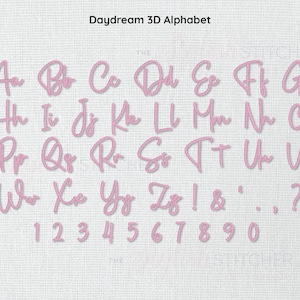 Daydream 3D Alphabet
THE
Aa Bb Cc Dd Ee Ff G
STITCHER
Hh Ii Jj Kk Ll Mm Nn
Pp Qq Rr Ss Tt Uu
Ww Xx Yy Zz ! & ' . , ?
1 2 3 4 5 6 7 8 9 0
THE STITCHER